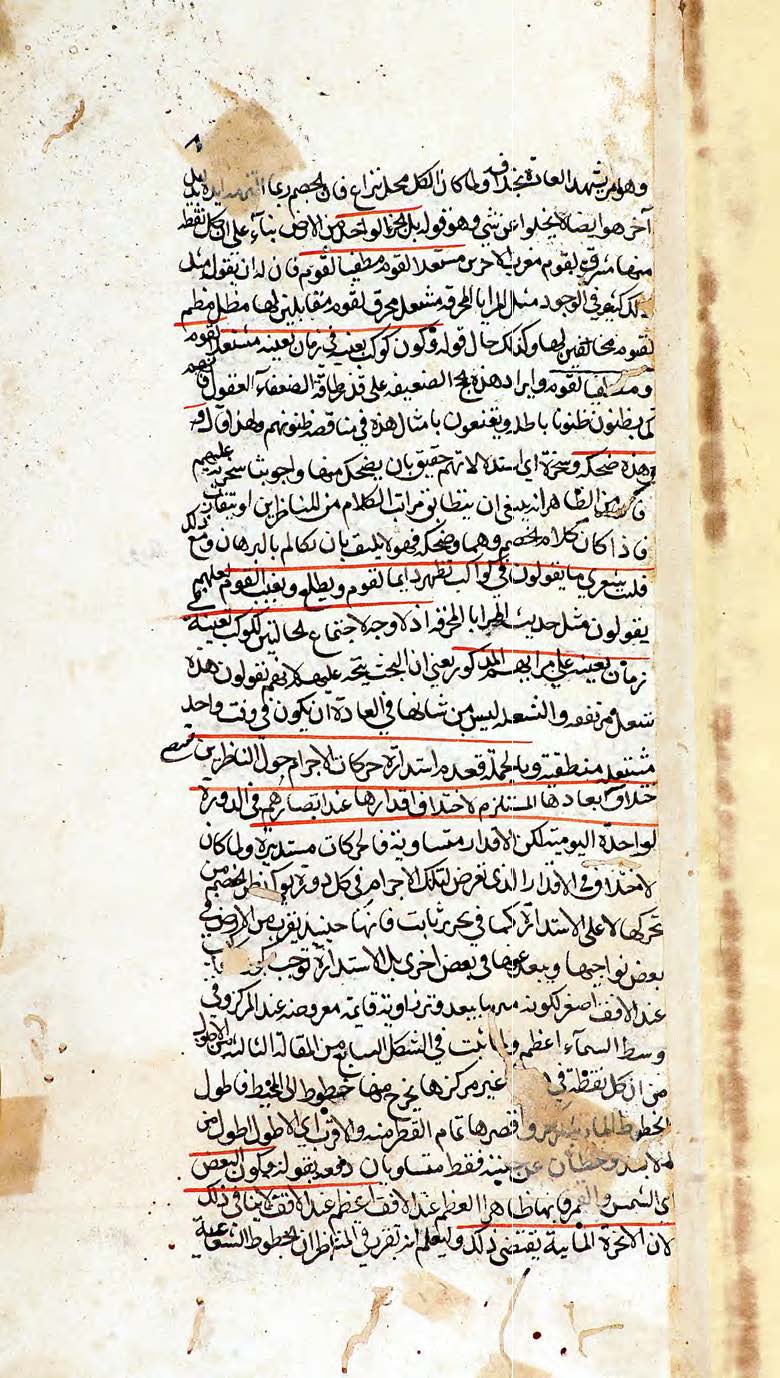 وهو امر يشهد العادة بخلافه ولما كان الكل محل نزاع فان الخصم ربما
آخر هو ايضا لا يخلوا عن شئ وهو قوله بل الجزء الواحد من الارض بناء على ان كل نقطة
منها مشرق لقوم مغرب لآخرين مشتعلا لقوم مطفيا لقوم فان له ان يقول مثل
ذلك كثير في الوجود مثل المرايا المحرقة مشعل محرق لقوم مقابلين لها مظل مظلم
لقوم مخالفين لها وكذلك حال قوله وكون كوكب بعينه في زمان بعينه مشتعلا لقوم
ومنطفيا لقوم وايراد هذه الحجج الضعيفة على قدر طاقة الضعفاء العقول فانهم
كما يظنون ظنونا باطلة ويقنعون بامثال هذه في مناقضة ظنونهم ولهذا قال
وهذه ضحكة وسخرة اي استدلالاتهم حقيق بان يضحك منها واجوبتنا سخرية عليهم
من الظاهر انه ينبغى ان يتطابق مراتب الكلام من المناظرين او يتقارب
فاذا كان كلام الخصم وهما وضحكة فهو لا يليق بان تكالم بالبرهان ومع ذلك
فليت شعري ما يقولون في كواكب تظهر دايما لقوم ويطلع ويغيب القوم عليهم
يقولون مثل حديث المرايا المحرقة اذ لا وجه لاجتماع الحالتين لكوكب بعينه في
زمان بعينه على مرايهم المذكور يعني ان البحث يتجه عليهم لانهم يقولون هذه
شعل مرتفعة والشعلة ليس من شانها في العادة ان يكون في وقت واحد
مشتعلة منطفية وبالجملة فعدم استدارة حركات الاجرام حول الناظرين يقتضى
اختلاف ابعادها المستلزم لاختلاف اقدارها عند ابصارهم في الدورة
الواحدة اليومية لكن الاقدار متساوية فالحركات مستديرة ولما كان
الاختلاف في الاقدار الذى تعرض لتلك الاجرام في كل دورة من
تحركها لا على الاستدارة كما في تحرير ثابت فانها حينئذ يقرب من الارض في
بعض نواحيها ويبعد عنها في بعض اخرى بل الاستدارة توجب
عند الافق اصغر لكونه مرييا ببعد وتر زاوية قايمة مفروضة عند المركز وفي
وسط السماء اعظم ولما ثبت في الشكل السابع من المقالة الثالثة من الاصول
من ان كل نقطة في غير مركزها يخرج منها خطوط الى المحيط فاطول
الخطوط المار بالمركز واقصرها تمام القطر منه والاقرب الى الاطول اطول من
الابعد وخطان عن جنبيه فقط متساويان دفعه بقوله وكون البعض
اي الشمس والقمر فانهما ظاهرا العظم عند الافق اعظم عند الافق لا ينافى ذلك
لان الابخرة المائية يقتضى ذلك وليعلم انه تقرر في المناظر ان الخطوط الشعاعية